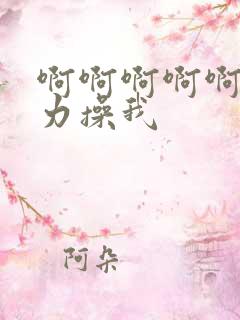 啊啊啊啊啊
力操我
阿朵